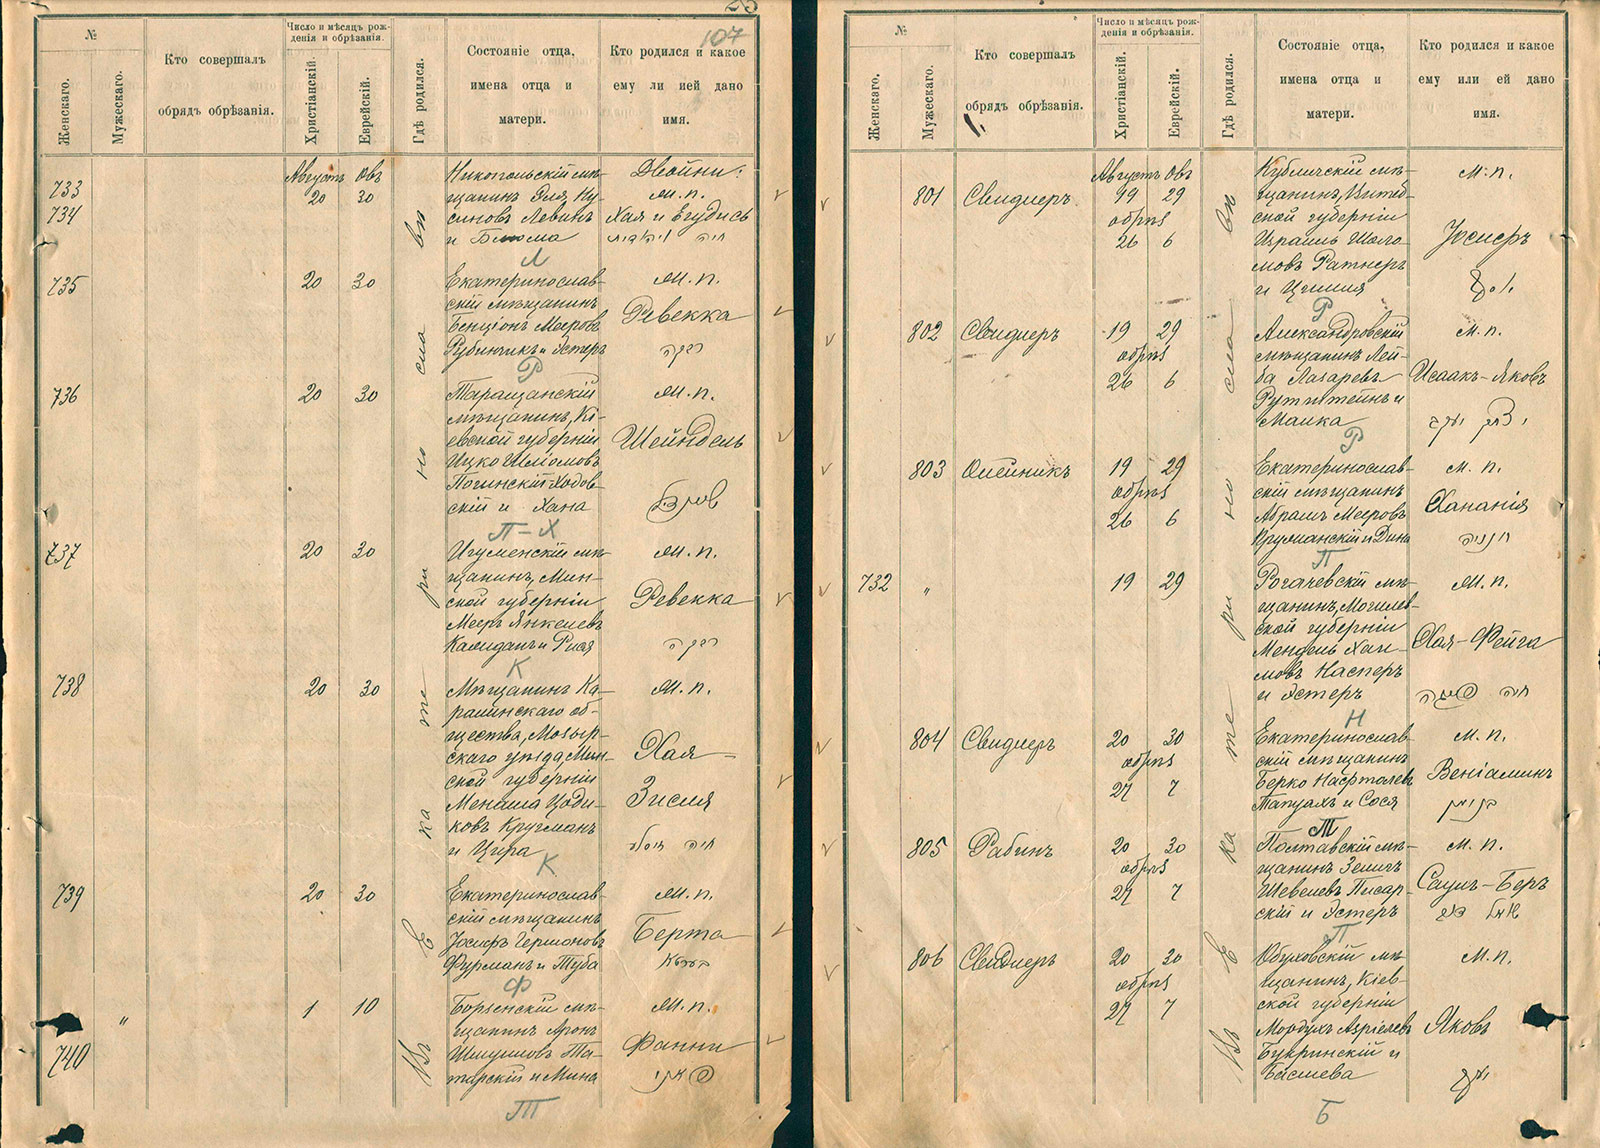 107
№
Женскаго.
Мужескаго.
Кто совершалъ
обрядъ обрѣзанія.
Число и мѣсяцъ рож-
денія и обрѣзанія.
Христіанскій.
Еврейскій.
Гдѣ родился.
Состояніе отца,
имена отца и
матери.
Кто родился и какое
ему ли ией дано
имя.
Августъ Овъ
Въ Екатеринославѣ
733
734
20 30
Никопольскій мѣ-
щанинъ Эля Ну-
синовъ Левинъ
и Блюма
Двойни:
м. п.
Хая и Ѣгудись
Л
735
20 30
Екатеринослав-
скій мѣщанинъ
Бенціонъ Мееровъ
Рубинчикъ и Эстеръ
м. п.
Ревекка
רבקה
Р
736
20 30
Таращанскій
мѣщанинъ, Кі-
евской губерніи
Ицко Шліомовъ
скій и Хана
м. п.
Шейндель
П-Х
737
20 30
Игуменскій мѣ-
щанинъ, Мин-
ской губерніи
Мееръ Янкелевъ
м. п.
Ревекка
רבקה
К
738
20 30
Мѣщанинъ Ка-
ралинскаго об-
щества, Мозыр-
скаго уѣзда, Мин-
ской губерніи
Менаша
ковъ Кругманъ
и Цира
м. п.
Хая-
Зисля
К
739
20 30
Екатеринослав-
скій мѣщанинъ
Іосифъ Гершоновъ
Фурманъ и Туба
м. п.
Берта
Ф
740
"
1 10
Борзенскій мѣ-
щанинъ Аронъ
Шмуиловъ Та-
тарскій и Мина
м. п.
Фанни
פאני
Т
№
Женскаго.
Мужескаго.
Кто совершалъ
обрядъ обрѣзанія.
Число и мѣсяцъ рож-
денія и обрѣзанія.
Христіанскій.
Еврейскій.
Гдѣ родился.
Состояніе отца,
имена отца и
матери.
Кто родился и какое
ему или ей дано
имя.
Августъ Овъ
Въ Екатеринославѣ
801 Свидлеръ
19 29
обрѣз
26 6
Кубличскій мѣ-
щанинъ, Витеб-
ской губерніи
Израиль Шоло-
мовъ Ратнеръ
и Цишля
м. п.
Іосифъ
יוסף
Р
802 Свидлеръ
19 29
обрѣз
26 6
Александровскій
мѣщанинъ Лей-
ба Лазаревъ
Рутштейнъ и
Малка
м. п.
Исаакъ-Яковъ
יצחק יעקב
Р
803 Олейникъ
19 29
обрѣз
26 6
Екатеринослав-
скій мѣщанинъ
Абрамъ Мееровъ
и Дина
м. п.
Хананія
חנניה
П
732 "
19 29
Рогачевскій мѣ-
щанинъ, Могилев-
ской губерніи
Мендель Хаи-
мовъ Насперъ
и Эстеръ
м. п.
Хая-Фейга
חיה פייגה
Н
804 Свидлеръ
20 30
обрѣз
27 7
Екатеринослав-
скій мѣщанинъ
Берко Нафталевъ
Тапуахъ и Сося
м. п.
Веніаминъ
בנימין
Т
805 Рабинъ
20 30
обрѣз
27 7
Полтавскій мѣ-
щанинъ Зелигъ
Шевелевъ Писар-
скій и Эстеръ
м. п.
Саулъ-Беръ
П
806 Свидлеръ
20 30
обрѣз
27 7
Обуховскій мѣ-
щанинъ, Кіев-
ской губерніи
Мордухъ Азріелевъ
Букринскій и
Басшева
м. п.
Яковъ
יעקב
Б